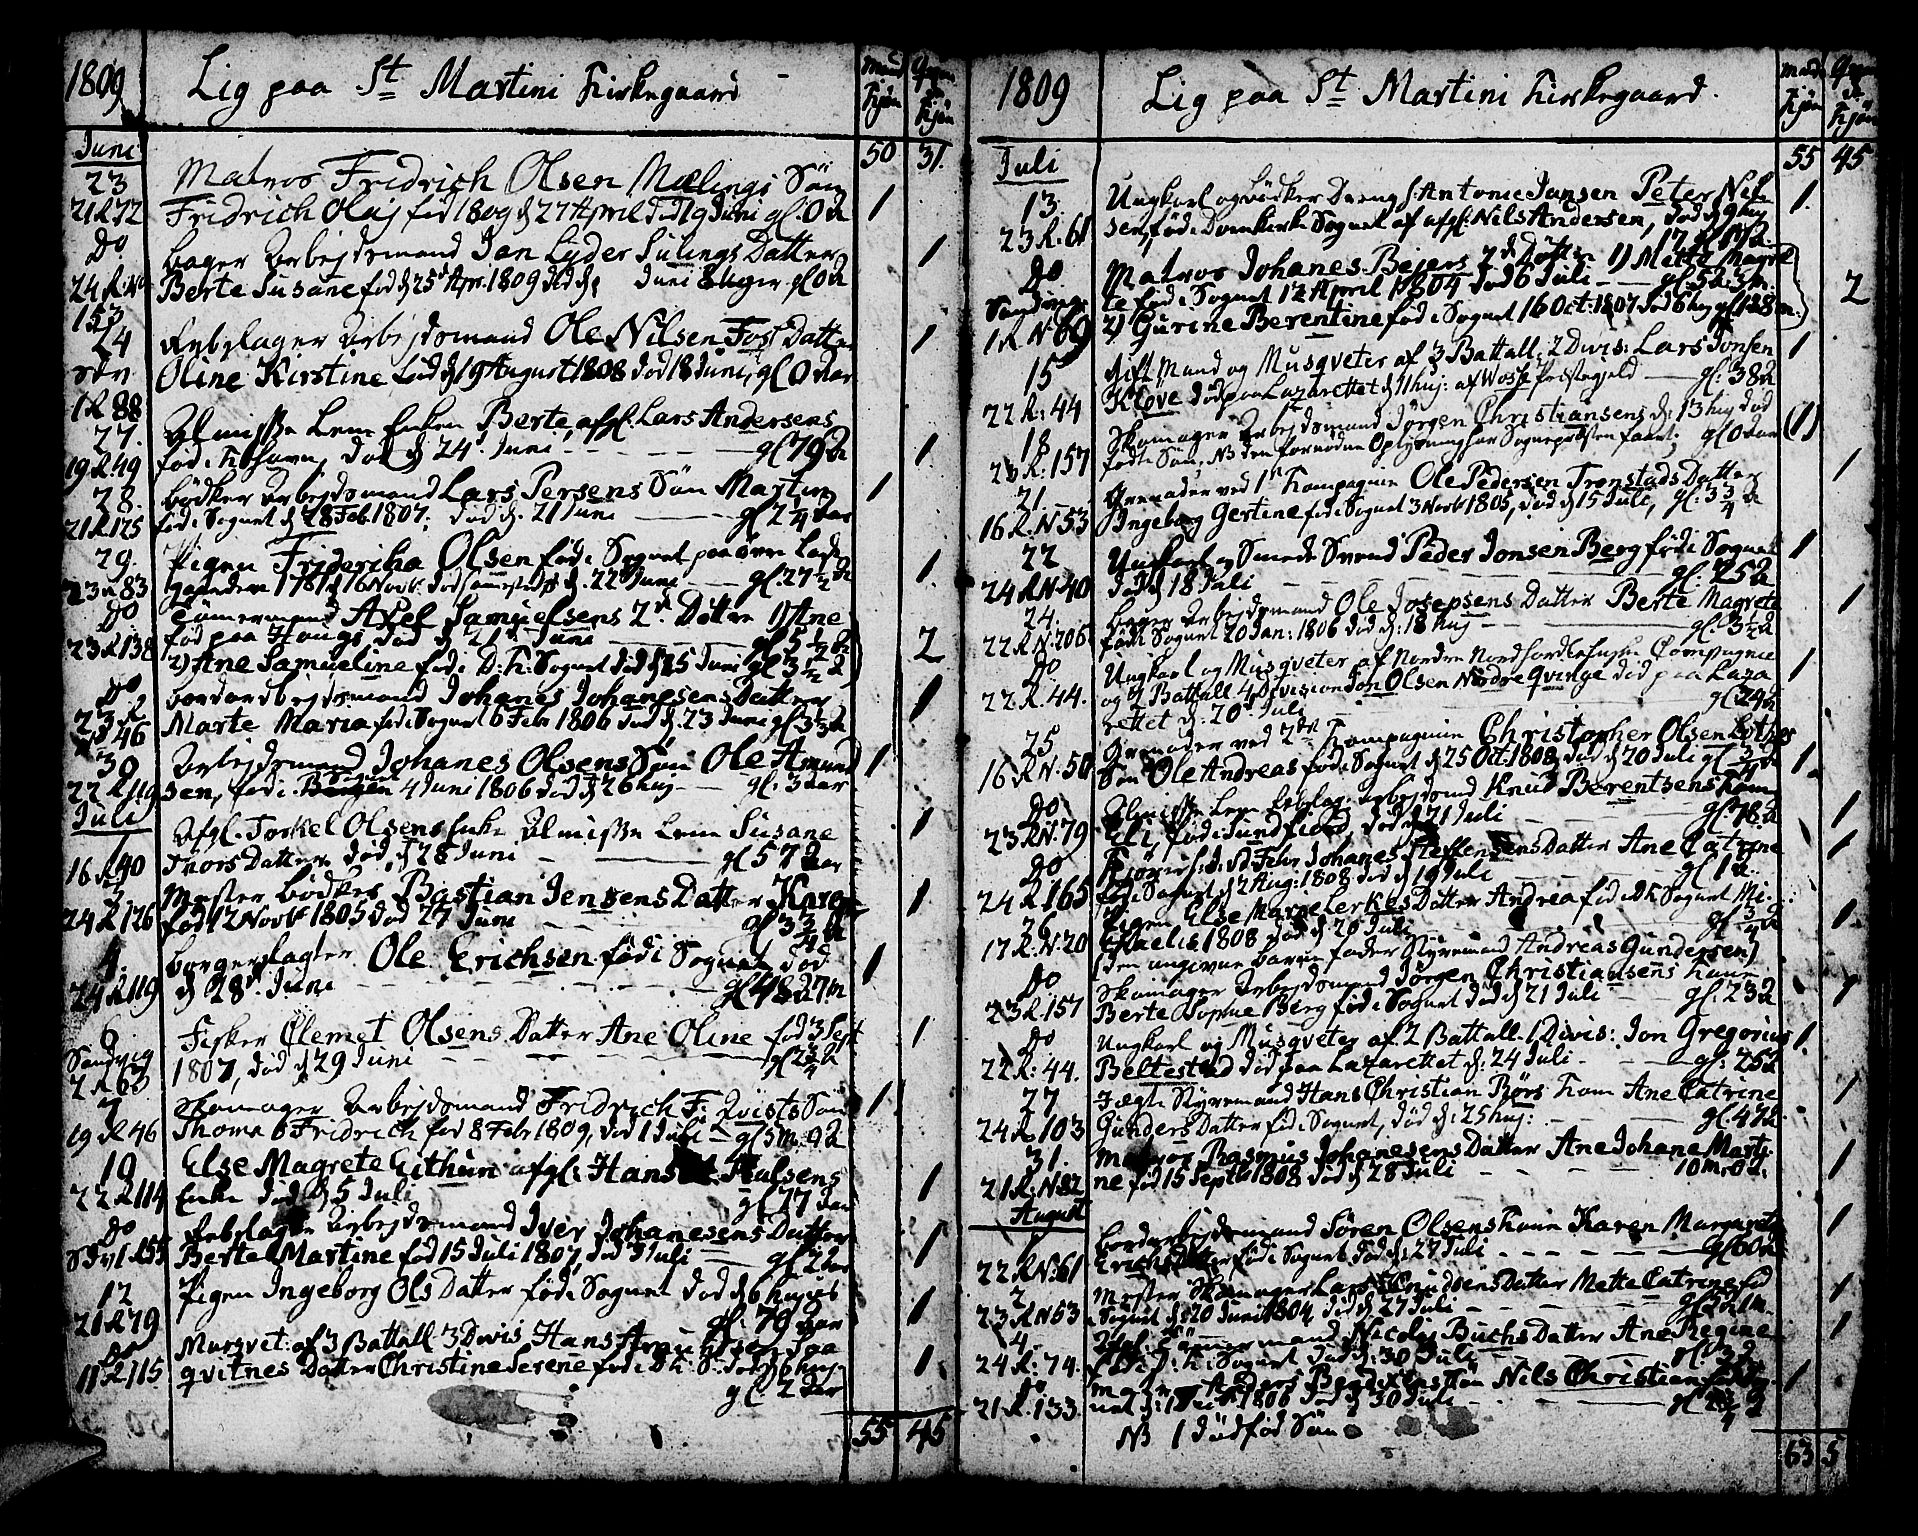 1809
Lig paa St Martini Kirkegaard
Mand Kjøn
Qvinde Kjøn
Juni
50 31.
23 Matros Fridrich Olsen Mælings Søn
21 R 72 Fridrich Olaj fød 1809 d 27 April død 19 Juni gl. 0 Aar 1
Do Bager Arbejdsmand Jan Lyder Sulings Datter 1
24 R No 153 Berte Susane fød d 25d Apr. 1809 død d. Juni 8 Uger, gl 0 A
24 Rebslager Arbejdsmand Ole Nilsen Foss Datter 1
Sdv 1 R 88 Oline Kirstine fød d 19 August 1808 død 18 Juni, gl 0 Aar
27. Almisse Lem Enken Berte, afgl. Lars Andersens
19 R 49 fød i Kbhavn, død d 24d Juni gl 79 A 1
28. Bødker Arbejdsmand Lars Persens Søn Martin 1
21 R 125 fød i Sognet d 28 Feb. 1807, død d. 21 Juni gl 2 1/4 Aar
29. Pigen Friderika Olsen fød i Sognet paa Øvre Lade 1.
23 R 83 gaarden 1781 d 16 Novb. død sammesteds d. 22 Juni gl. 27 1/2 A
Do Tømermand Axel Samuelsens 2de Døttre 1) Ane
23 R 138 fød paa Haugs død d 21 Juni gl 5 1/2 A 2
2) Ane Samueline fød i D: K: Sognet død d 25 Juni gl 3 1/2 A
Do Bordarbejdsmand Johanes Johanesens Datter 1
23 R 46 Marte Maria fød i Sognet 6 Febr 1806 død d. 23 Juni gl 3 1/2 A
30 Arbejdsmand Johanes Olsens Søn Ole Amund 1
22 R 119 sen, fød i Bergen 4 Juni 1806 død d 26 huj gl. 3 Aar
Juli
1 Afgl. Torkel Olsens Enke Almisse Lem Susane 1
16 R 40 Thors Datter død, d 28 Juni gl 57 Aar
3 Mester Bødker Bastian Jensens Datter Karen 1
24 R 126 fød 12 Novbr 1805 død 27 Juni gl 3 3/4 A
4. Borger slagter Ole Erichsen fød i Sognet død 1
24 R 119 d 28d Juni gl 48 A 7 m
6 Fisker Clemet Olsens Datter Ane Oline fød 3 Sept 1
Sandvig 2 R 63 1807, død d 29 Juni gl 2 3/4 A
7 Skomager Arbejdsmand Fridrich F: Qvists Søn 1.
19 R 46 Thomas Fridrich fød 8 Febr 1809, død 1 Juli gl 5 m. 0 A
10 Else Magrete Eithun afgl. Hans Halsens
22 R 114 Enke død d 5 Juli gl 77 Aar 1
Do Rebslager Arbejdsmand Iver Johanesens Datter 1
Sdv 1 R 55 Berte Martine fød 15 Juli 1807, død 9 Juli gl 2 Aar
12 Pigen Ingeborg Ols Datter fød i Sognet død d 6 hujus
21 R 79 gl. 79 Aar 1
Do Musqvet: af 3 Battall 3 Divis Hans
11 R 115 qvitnes Datter Christine Serene fød i D: K: S: død 6 huj. 1
gl 2 Aar
55 45
1809
Lig paa St Martini Kirkegaard.
Mand Kjøn
Qvinde Kjøn
Juli
55 45
13 Ungkarl og Bødker Dreng S. Antonie Jansen Peter Nil- 1.
23 R. 61 sen, fød i Domkirke Sognet af afgl. Nils Andersen, død d 9 huj
17 A
Do Matros Johanes Bejers 2de Døttre 1) Mette Magre
Sandvigs te fød i Sognet 12 April 1804 død 6 Juli gl 5 A. 3 m. 2
1 R N 89 2) Gurine Berentine fød i Sognet 16 Oct. 1807 død 6 huj gl 1 A 8 m.
15 Gift Mand og Musqveter af 3 Battall. 2 Divis: Lars Jonsen 1
22 R. 44 Kløve død paa Lazarettet d 11 huj. af Woss Præstegjeld gl. 38 A
18 Skomager Arbejdsmand Jørgen Christiansens d. 13 huj død (1)
23 R. 157 fødte Søn, NB den fornødne Oplysning har Sognepræsten faaet; gl 0 Aar
21. Grenader ved 1ste Kompagnie Ole Pedersen Tronstads Datter 1
16 R. N 53 Ingeborg Gertine fød i Sognet 3 Novbr 1805, død d 15 Juli, gl. 3 3/4 A
22 Ungkarl og Smede Svend Peder Jonsen Berg fød i Sognet 1
24 R N. 40 død d 18 Juli gl. 25 A
24. Bager Arbejdsmand Ole Josepsens Datter Berte Magrete 1
22 R N. 206 fød i Sognet 20 Jan: 1806 død d. 18 huj gl. 3 1/2 A
Do Ungkarl og Musqveter af Nordre Nordfiordlehnske Compagnie 1
22 R. 44. og 2 Battall 4 Division Jon Olsen Nordre Qvinge død paa Laza
rettet d. 20d Juli gl 24 A
25 Grenader ved 2den Kompagnie Christopher Olsen Lothes
16 R N. 50 Søn Ole Andreas fød i Sognet d 25 Oct. 1808 død d 20 Juli gl 3/4 A 1.
Do Almisse Lem Rebslag. Arbejdsmd Knud Berentsens kone
23 R N. 79 Eli, fød i Sundfiord, død d 21 Juli gl 78 A 1
Do Johanes Steffensens Datter Ane Catrine 1
24 R 165 fød i Sognet d 2 Aug: 1808 død d 19 Juli gl 1 A.
26 Pigen Else Margrete Lerkes Datter Andrea fød i D K Sognet Mi-
17 R. N. 20 chaelis 1808 død d 20 Juli gl. 3/4 A 1.
(den angivne Barne fader Styrmand Andreas Gundersen)
Do Skomager Arbejdsmand Jørgen Christiansens kone 1
23 R. 157 Berte Sophie Berg fød i Sognet død d 21 Juli gl. 23 A
Do Ungkarl og Musqveter af 2 Battall. 1 Divis: Jon Gregorius 1.
22 R. 44. Beltestad død paa Lazarettet d. 24 Juli gl. 25 A
27 Jægts Styrmand Hans Christian Børs kone Ane Catrine 1
24 R 103 Gunders Datter fød i Sognet, død d. 25 huj: gl. 47 A
31. Matros Rasmus Johanesens Datter Ane Johane Marti- 1
21 R. N 82 ne fød 15 Septbr 1808 død d 28 Juli 10 m. 0 A.
August
Bordarbejdsmand Søren Olsens kone Karen Margarete 1
22 R N. 61 Erichs Datter fød i Sognet død d. 27 Juli gl 60 A
2 Mester Skomager Lars Knudsens Datter Mette Catrine fød 1
23 R N 53 i Sognet d. 20 Juni 1804, død d 27 Juli gl 5 A 1 m.
4. Afgl. Tømmermand Nicolai Buchs Datter Ane Regine 1
24 R. 74. fød i D: K: Sognet død d. 30 Juli gl. 3 A
Do Matros Anders Søn Nils Christian fød i Sog- 1
21 R. 133. net d. 1806 død d 30 Juli gl 2 3/4 A
NB 1 dødfød Søn
63 5